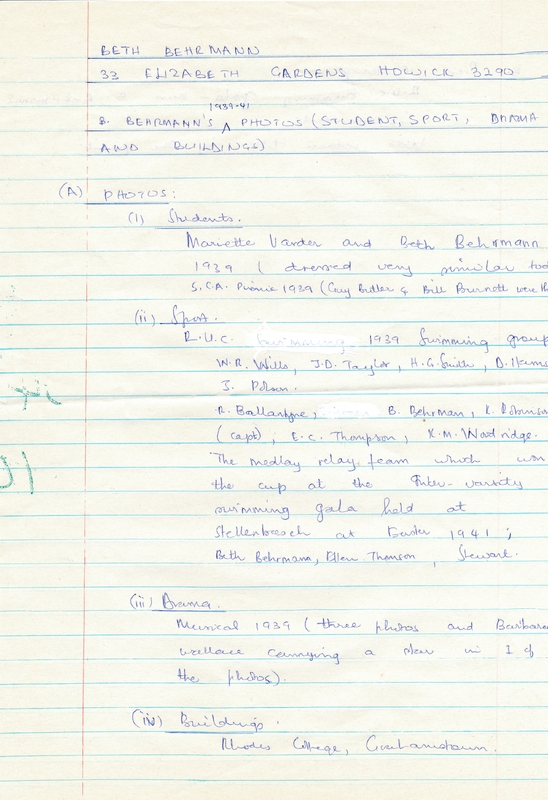 BETH BEHRMANN
33 ELIZABETH GARDENS HOWICK 3290
1939-41
B. BEHRMANN'S ^ PHOTOS (STUDENT, SPORT, DRAMA
AND BUILDINGS)
(A) PHOTOS:
(i) Students.
Mariette Varder and Beth Behrmann
1939 ( dressed very similar
S.C.A. Picnic 1939 (Guy Butler & Bill Burnett were
(ii) Sport.
R.U.C. Swimming 1939 Swimming group
W.R. Wills, J.D. Taylor, H.G. Smith, D.
J.
R. Ballantyne, B. Behrman, K. Robinson
(capt), E.C. Thompson, K.M. Woodridge.
The medlay relay team which won
the cup at the Inter-varsity
swimming gala held at
Stellenbosch at Easter 1941;
Beth Behrmann, Ellen Thomson, Stewart.
(iii) Drama.
Musical 1939 (three photos and Barbara
Wallace carrying a in 1 of
the photos).
(iv) Buildings.
Rhodes College, Grahamstown.